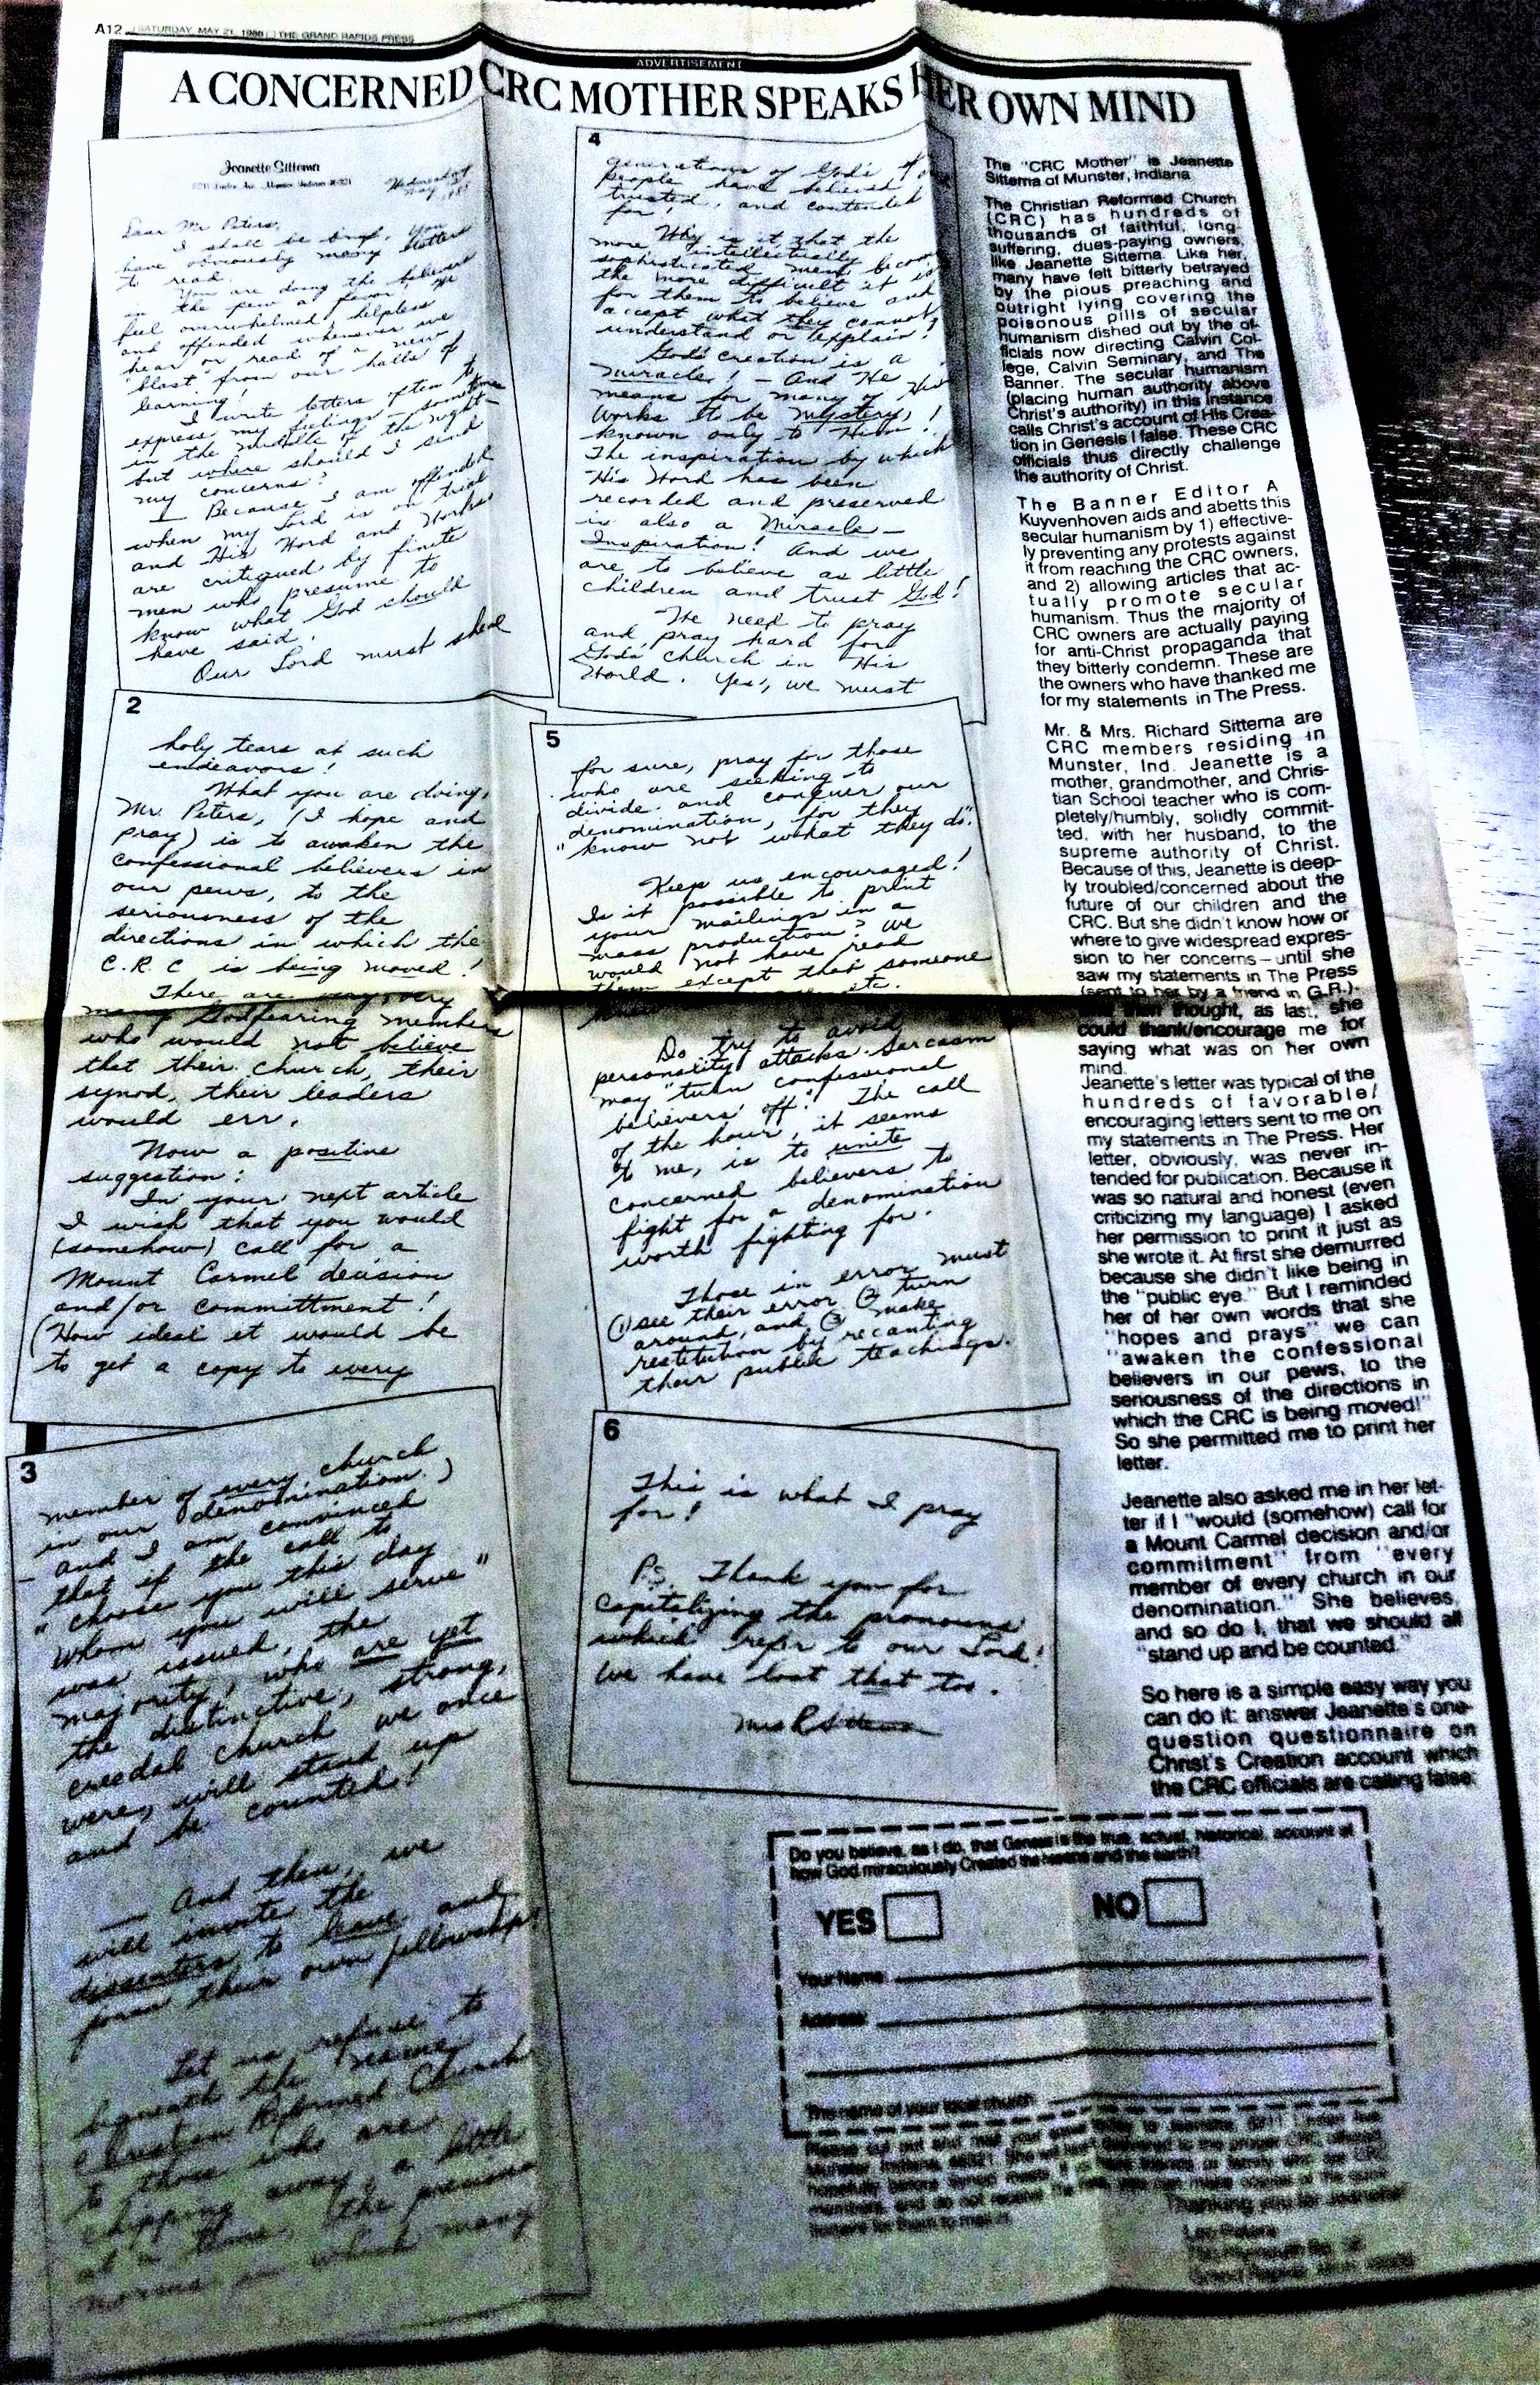 A12 SATURDAY, MAY 21, 1988 THE GRAND RAPIDS PRESS
ADVERTISEMENT
A CONCERNED CRC MOTHER SPEAKS HER OWN MIND
Jeanette Sittema
Wednesday
May
Dear Mr. Peters,
I shall be brief, you
have obviously many letters
to read.
You are doing the believer
in the pew a favor. We
feel overwhelmed, helpless
and offended whenever we
hear or read of a new
"blast" from our halls of
learning!
I write letters often to
express my feelings - sometimes
in the middle of the night -
but where should I send
my concerns?
— Because I am offended
when my Lord is on trial
and His Word and Works
are critiqued by finite
men who presume to
know what God should
have said.
Our Lord must shed
2
holy tears at such
endeavors!
What you are doing,
Mr. Peters, (I hope and
pray) is to awaken the
confessional believers in
our pews, to the
seriousness of the
directions in which the
C.R.C is being moved!
There are very, very
many Godfearing members
who would not believe
that their church, their
synod, their leaders
would err.
Now a positive
suggestion:
In your next article
I wish that you would
(somehow) call for a
Mount Carmel decision
and/or committment!
(How ideal it would be
to get a copy to every
3
member of every church
in our denomination.)
- and I am convinced
that if the call to
"choose you this day
whom you will serve"
was issued, the
majority, who are yet
the distinctive, strong,
creedal church we once
were, will stand up
and be counted!
— And then, we
will invite the
dissenters to leave and
form their own fellowship!
Let us refuse to
bequeath the name
Christian Reformed Church
to those who are
chipping away, a little
at a time, the precious
norms in which many
4
generations of God's
people have believed,
trusted, and contended
for!
Why is it that the
more "intellectually
sophisticated" men become
the more difficult it is
for them to believe and
accept what they cannot
understand or explain?
God's creation is a
miracle! - And He
means for many of His
Works to be mystery,!
known only to Him!
The inspiration by which
His Word has been
recorded and preserved
is also a Miracle -
Inspiration! And we
are to believe as little
children and trust God!
We need to pray
and pray hard for
God's church in His
World. Yes, we must
5
for sure, pray for those
who are seeking to
divide and conquer our
denomination, for they
"know not what they do."
Keep us encouraged!
Is it possible to print
your mailings in a
mass production? We
would not have read
them except that someone
etc.
Do try to avoid
personality attacks. Sarcasm
may "turn confessional
believers off." The call
of the hour, it seems
to me, is to unite
concerned believers to
fight for a denomination
worth fighting for.
Those in error must
① see their error ② turn
around, and ③ make
restitution by recanting
their public teachings.
6
This is what I pray
for!
P.S. Thank you for
capitalizing the pronouns
which refer to our Lord!
We have lost that too.
Mrs R Sittema
The "CRC Mother" is Jeanette
Sittema of Munster, Indiana
The Christian Reformed Church
(CRC) has hundreds of
thousands of faithful, long-
suffering, dues-paying owners,
like Jeanette Sittema. Like her,
many have felt bitterly betrayed
by the pious preaching and
outright lying covering the
poisonous pills of secular
humanism dished out by the of-
ficials now directing Calvin Col-
lege, Calvin Seminary, and The
Banner. The secular humanism
(placing human authority above
Christ's authority) in this instance
calls Christ's account of His Crea-
tion in Genesis I false. These CRC
officials thus directly challenge
the authority of Christ.
The Banner Editor A
Kuyvenhoven aids and abetts this
secular humanism by 1) effective-
ly preventing any protests against
it from reaching the CRC owners,
and 2) allowing articles that ac-
tually promote secular
humanism. Thus the majority of
CRC owners are actually paying
for anti-Christ propaganda that
they bitterly condemn. These are
the owners who have thanked me
for my statements in The Press.
Mr. & Mrs. Richard Sittema are
CRC members residing in
Munster, Ind. Jeanette is a
mother, grandmother, and Chris-
tian School teacher who is com-
pletely/humbly, solidly commit-
ted, with her husband, to the
supreme authority of Christ.
Because of this, Jeanette is deep-
ly troubled/concerned about the
future of our children and the
CRC. But she didn't know how or
where to give widespread expres-
sion to her concerns—until she
saw my statements in The Press
(sent to her by a friend in G.R.).
thought, as last, she
could thank/encourage me for
saying what was on her own
mind.
Jeanette's letter was typical of the
hundreds of favorable/
encouraging letters sent to me on
my statements in The Press. Her
letter, obviously, was never in-
tended for publication. Because it
was so natural and honest (even
criticizing my language) I asked
her permission to print it just as
she wrote it. At first she demurred
because she didn't like being in
the "public eye." But I reminded
her of her own words that she
"hopes and prays" we can
"awaken the confessional
believers in our pews, to the
seriousness of the directions in
which the CRC is being moved!"
So she permitted me to print her
letter.
Jeanette also asked me in her let-
ter if I "would (somehow) call for
a Mount Carmel decision and/or
commitment" from "every
member of every church in our
denomination." She believes,
and so do I, that we should all
"stand up and be counted."
So here is a simple easy way you
can do it: answer Jeanette's one-
question questionnaire on
Christ's Creation account which
the CRC officials are calling false:
Do you believe, as I do, that Genesis is the true, actual, historical, account of
how God miraculously Created the heavens and the earth?
YES NO
Your Name
Address
The name of your local church
Thanking you for Jeanette
Leo Peters